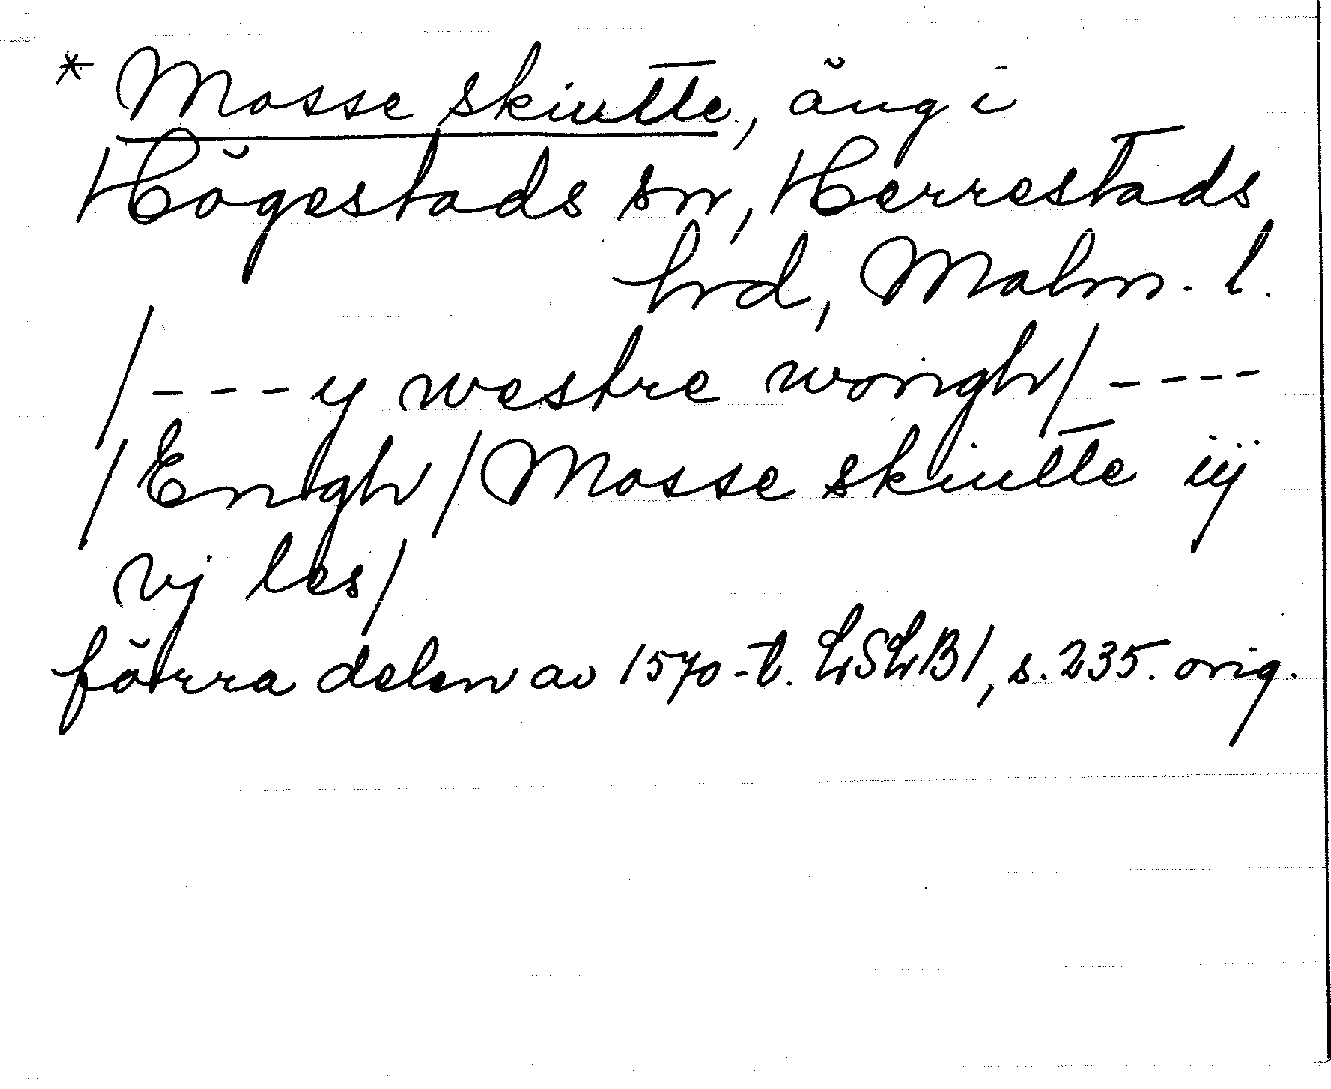 * Mosse skiutte, äng i
Högestads sn, Herrestads
hrd, Malm. l.
/---y westre wongh/----
/Engh/Mosse skiutte iij
vj les/
förra delen av 1570-t. LSLB1, s. 235. orig.